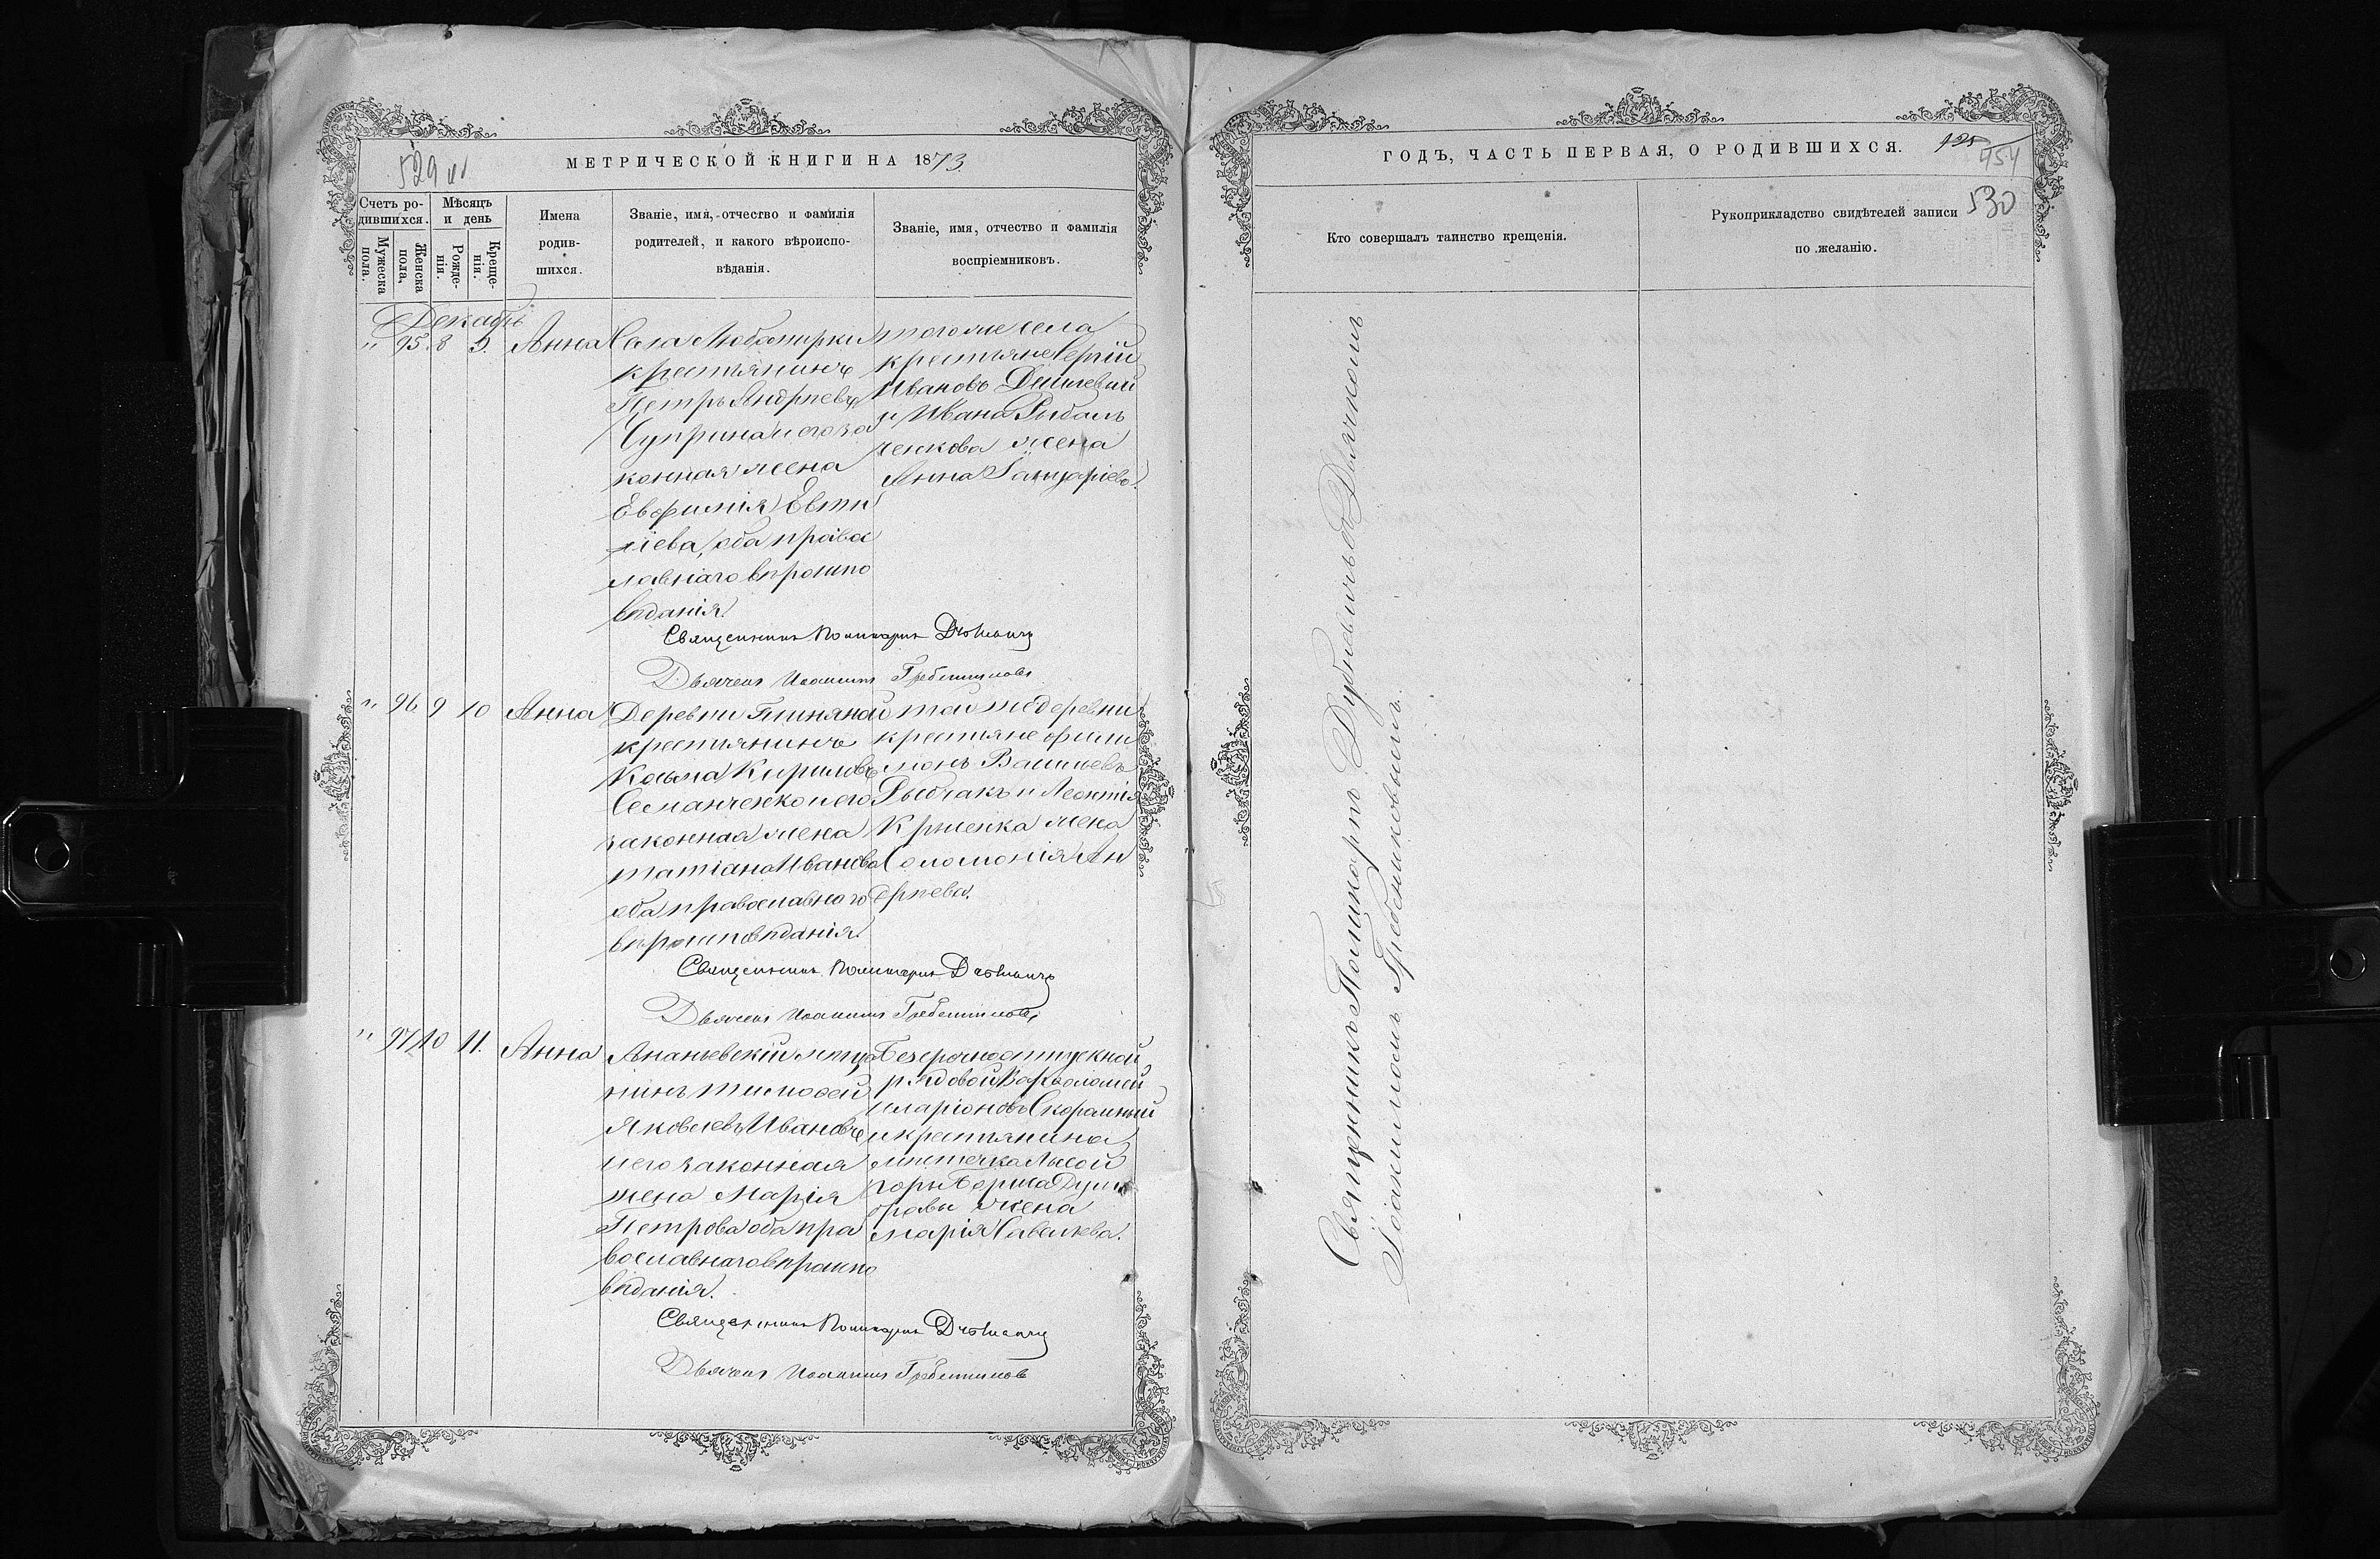 529 об
МЕТРИЧЕСКОЙ КНИГИ НА 1873
Счетъ ро-
дившихся.
Мѣсяцъ
и день
Мужеска
пола.
Женска
пола.
Рожде-
нія.
Креще-
нія.
Имена
родив-
шихся.
Званіе, имя, отчество и фамилія
родителей, и какого вѣроиспо-
вѣданія.
Званіе, имя, отчество и фамилія
воспріемниковъ.
Декабрь
" 95 8 9. Анна
Села Любомирки
крестьянинъ
Петръ Андреевъ
Чуприна и его за
конная жена
Евфимія Евти
хіева, оба правос
лавнаго вѣроиспо
вѣданія.
того же села
крестьяне Сергій
Ивановъ
и Ивана Рыбаль
ченкова жена
Анна
Священникъ Поликарпъ
Дьячекъ Иоакимъ Гребенниковъ
" 96 9 10 Анна
Деревни Глиняной
крестьянинъ
Косма Кириловъ
Семанченко и его
законная жена
Татіана Иванова
оба православнаго
вѣроисповѣданія.
той же деревни
крестьяне Фили
монъ Васильевъ
Рыбчакъ и Леонтія
жена
Соломонія Ан
дреева.
Священникъ Поликарпъ
Дьячекъ Иоакимъ Гребенниковъ
" 97 10 11. Анна
Ананьевскій мѣща
нинъ Тимофей
Яковлевъ Ивановъ
и его законная
жена Марія
Петрова оба пра
вославнаго вѣроиспо
вѣданія.
Безсрочноотпускной
рядовой Варфоломей
Иларіоновъ
и крестьянина
мѣстечка Лысой
горы Бориса
жена
Марія Савельева.
Священникъ Поликарпъ
Дьячекъ Иоакимъ Гребенниковъ
ГОДЪ, ЧАСТЬ ПЕРВАЯ, О РОДИВШИХСЯ.
454
530
Кто совершалъ таинство крещенія.
Рукоприкладство свидѣтелей записи
по желанію.
Священникъ Поликарпъ Дубневичъ съ Дьячкомъ
Іоакимомъ Гребенниковымъ.